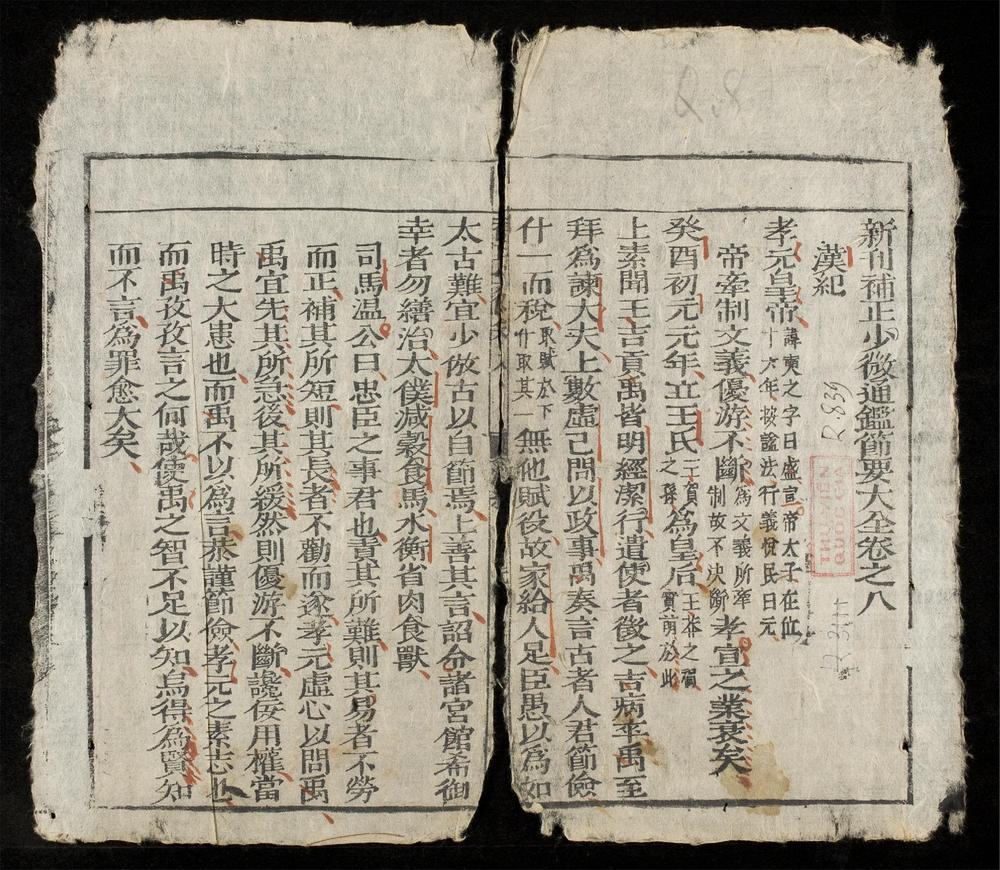 新刊補正少微通鑑節要大全卷之八
漢紀
孝元皇帝諱奭之字曰盛宣帝太子在位十六年按諡法行義悅民曰元
帝牽制文義優游不斷為文義所牽制故不決斷孝宣之業衰矣
癸酉初元元年立王氏王賀之孫為皇后王莽之賀實萌於此
上素聞王吉貢禹皆明經潔行遣使者徵之吉病卒禹至
拜為諫大夫上數虛己問以政事禹奏言古者人君節儉
什一而稅取賦於下什取其一無他賦役故家給人足臣愚以為如
太古難宜少倣古以自節焉上善其言詔令諸宮館希御
幸者勿繕治太僕減穀食馬水衡省肉食獸
司馬溫公曰忠臣之事君也責其所難則其易者不勞
而正補其所短則其長者不勸而遂孝元虛心以問禹
禹宜先其所急後其所緩然則優游不斷讒佞用權當
時之大患也而禹不以為言恭謹節儉孝元之素志也
而禹孜孜言之何哉使禹之智不足以知烏得為賢知
而不言為罪愈大矣
R.839
THU VIEN
QUOC GIA